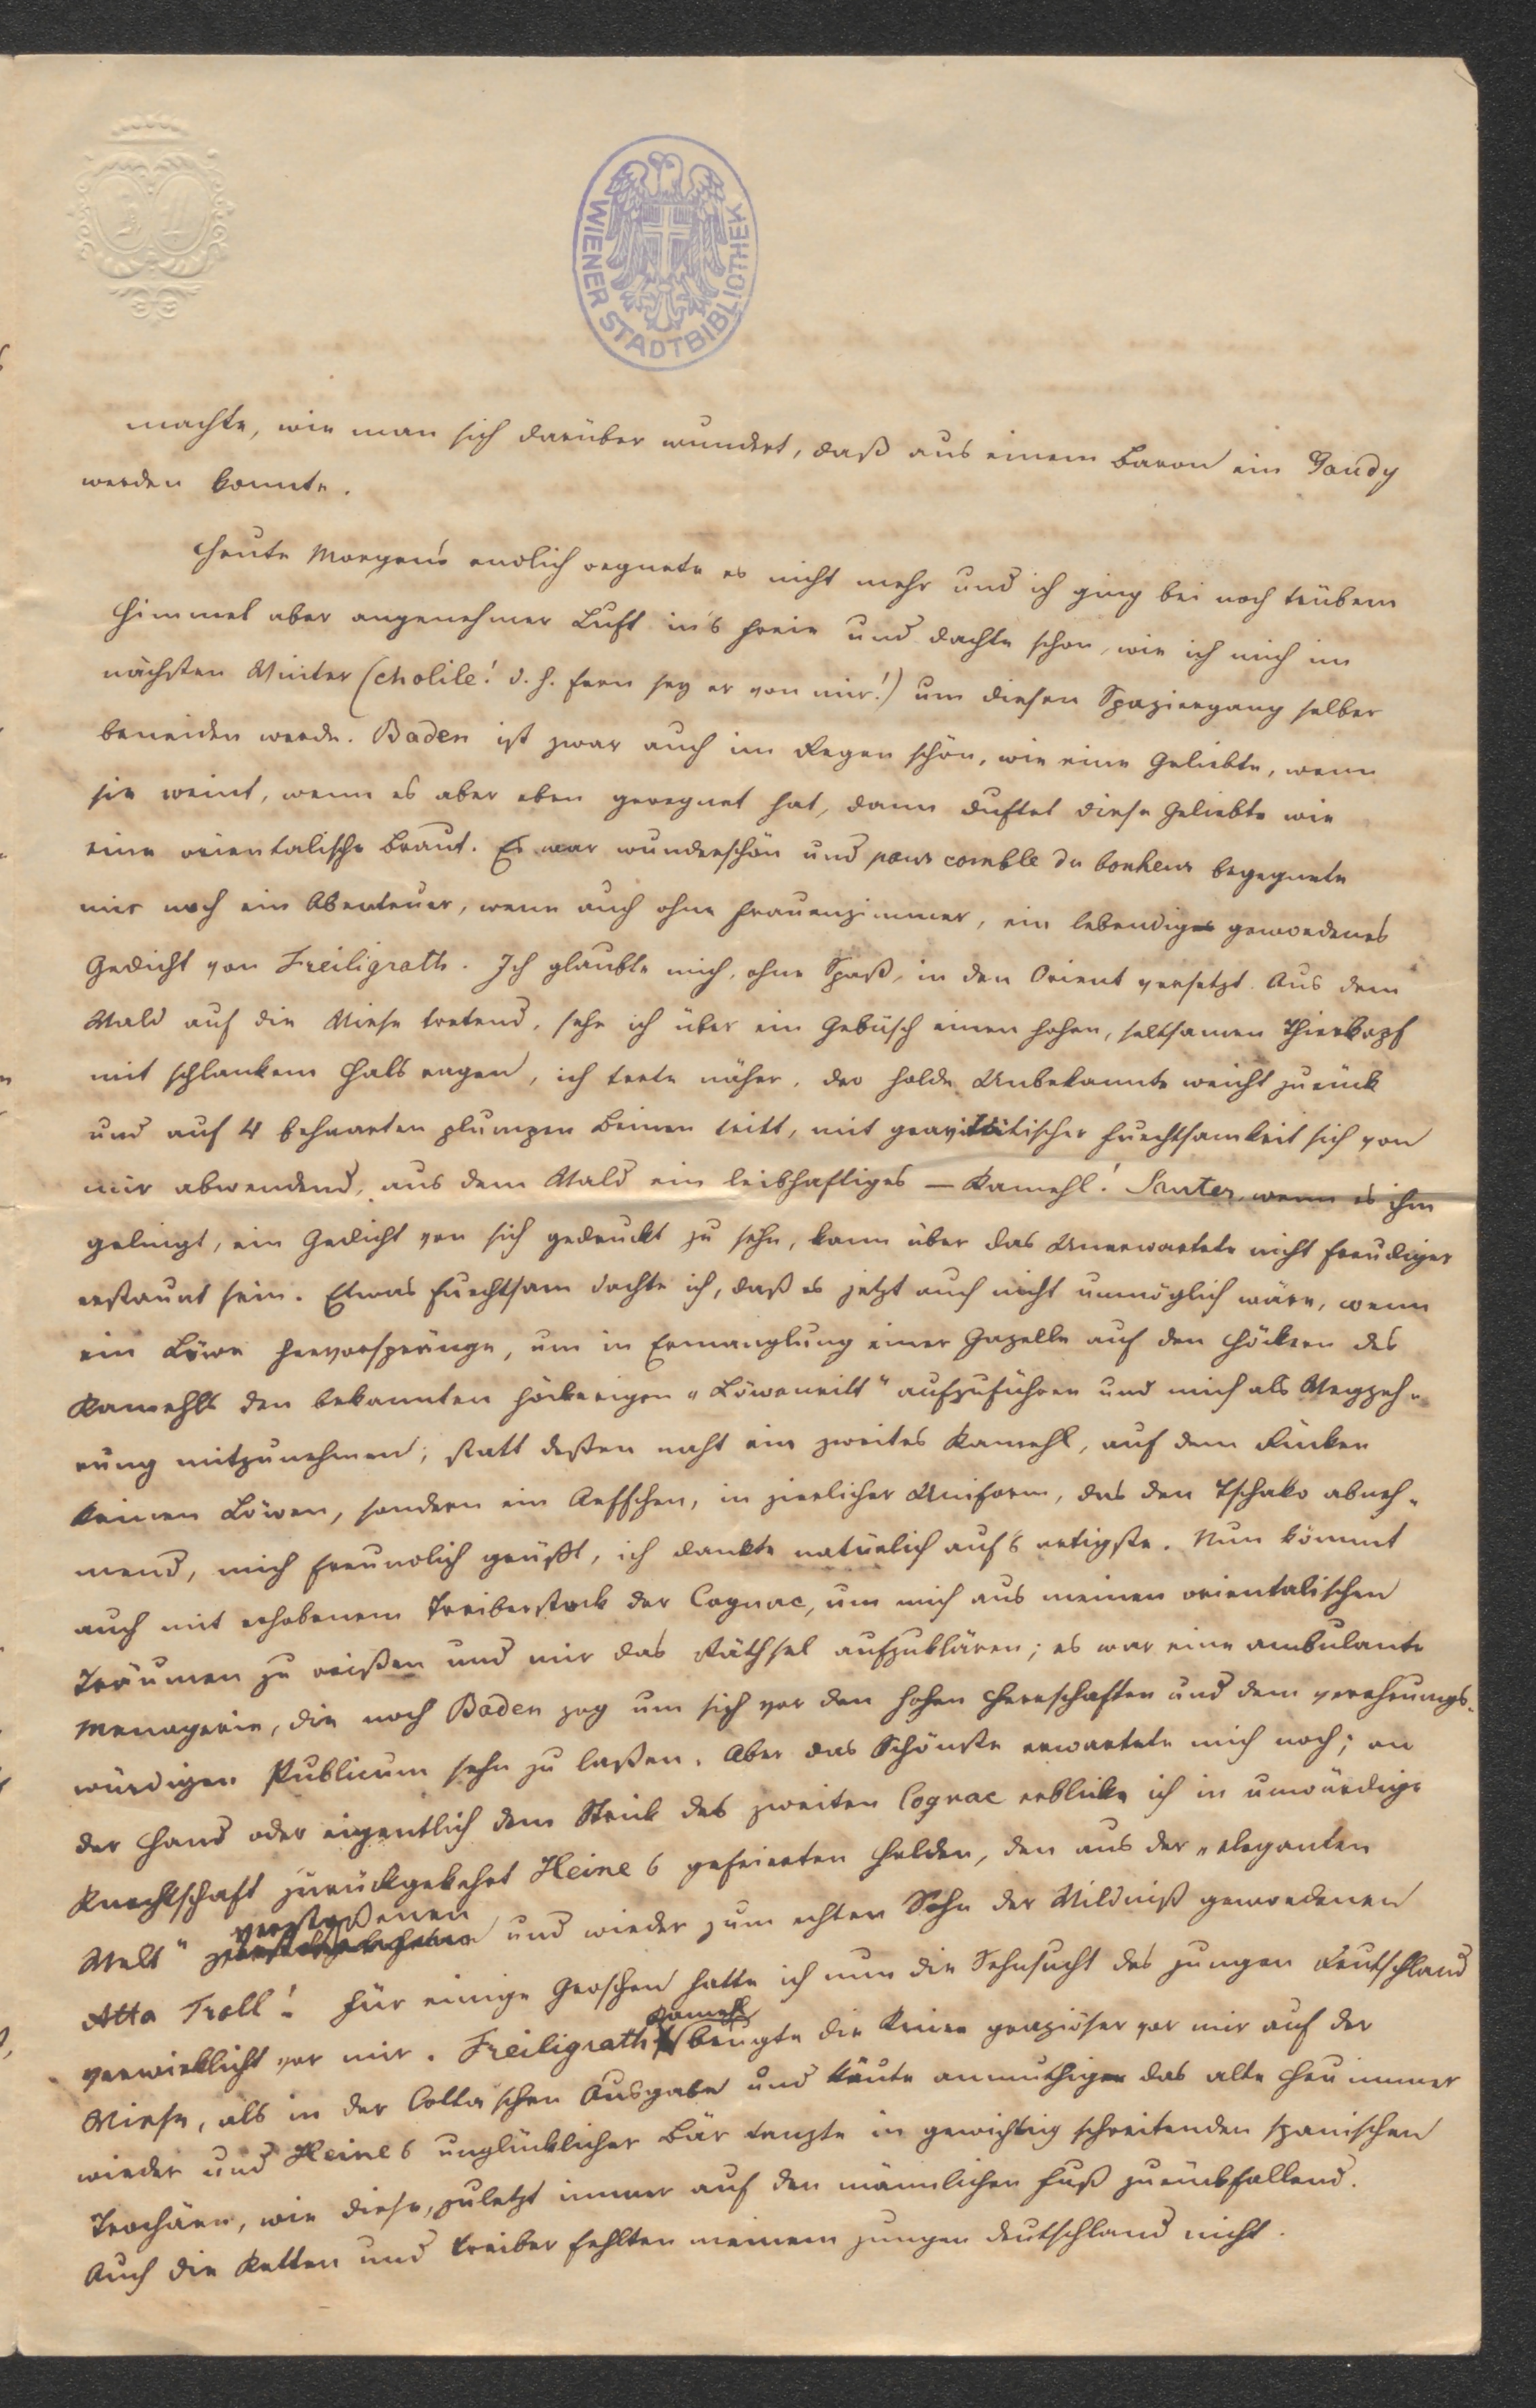 WIENER STADTBIBLIOTHEK
machte, wie man sich darüber wundert, daß aus einem Baron ein Gaudy
werden konnte.
Heute Morgens endlich regnete es nicht mehr und ich ging bei noch trübem
Himmel aber angenehmer Luft in's Freie und dachte schon, wie ich mich im
nächsten Winter (cholile! d. h. fern sey er von mir!) um diesen Spaziergang selber
beneiden werde. Baden ist zwar auch im Regen schön, wie eine Geliebte, wenn
sie weint, wenn es aber eben geregnet hat, dann duftet diese Geliebte wie
eine orientalische Braut. Es war wunderschön und pour comble du bonheur begegnete
mir noch ein Abenteuer, wenn auch ohne Frauenzimmer, ein lebendig gewordenes
Gedicht von Freiligrath. Ich glaubte mich, ohne Spaß, in den Orient versetzt. Aus dem
Wald auf die Wiese tretend, sehe ich über ein Gebüsch einen hohen, seltsamen Thierkopf
mit schlankem Hals ragen, ich trete näher, der holde Unbekannte weicht zurück
und auf 4 behaarten plumpen Beinen tritt, mit gravitätischer Furchtsamkeit sich von
mir abwendend, aus dem Wald ein leibhaftiges – Kamehl! Sauter, wenn es ihm
gelingt, ein Gedicht von sich gedruckt zu sehn, kann über das Unerwartete nicht freudiger
erstaunt sein. Etwas furchtsam dachte ich, daß es jetzt auch nicht unmöglich wäre, wenn
ein Löwe hervorspränge, um in Ermanglung einer Gazelle auf den Höckern des
Kamehls den bekannten höckerigen „Löwenritt" aufzuführen und mich als Wegzeh-
rung mitzunehmen; statt deßen naht ein zweites Kamehl, auf dem Rücken
keinen Löwen, sondern ein Aeffchen, in zierlicher Uniform, das den Tschako abneh-
mend, mich freundlich grüßt, ich dankte natürlich auf's artigste. Nun kömmt
auch mit erhobenem Treiberstock der Cognac, um mich aus meinen orientalischen
Träumen zu reißen und mir das Räthsel aufzuklären; es war eine ambulante
Menagerie, die nach Baden zog um sich vor den hohen Herrschaften und dem verehrungs-
würdigen Publicum sehn zu laßen. Aber das Schönste erwartete mich noch; an
der Hand oder eigentlich dem Strick des zweiten Cognac erblicke ich in unwürdige
Knechtschaft zurückgekehrt Heine's gefeierten Helden, den aus der „eleganten
verstoßenen
Welt" und wieder zum echten Sohn der Wildniß gewordenen
Atta Troll! Für einige Groschen hatte ich nun die Sehnsucht des jungen Deutschland
Kamehl
verwirklicht vor mir. Freiligraths beugte die Kniee graziöser vor mir auf der
Wiese, als in der Cotta'schen Ausgabe und käute anmuthiger das alte Heu immer
wieder und Heine's unglücklicher Bär tanzte in gewichtig schreitenden spanischen
Trochäen, wie diese, zuletzt immer auf den männlichen Fuß zurückfallend.
Auch die Ketten und Treiber fehlten meinem jungen Deutschland nicht.